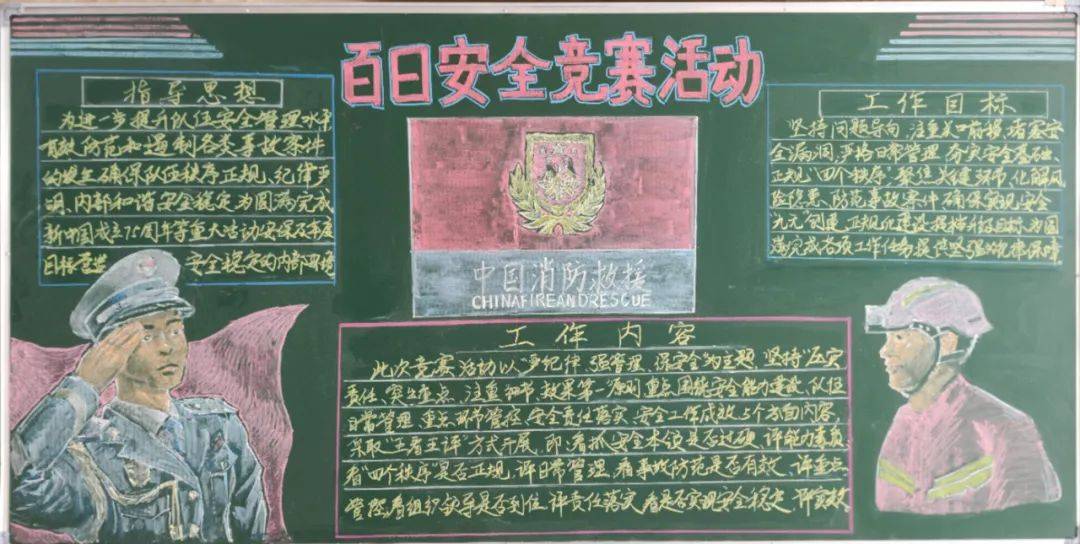 百日安全竞赛活动
指导思想
为进一步提升队伍安全管理水平
有效防范和遏制各类事故案件
的发生确保队伍秩序正规、纪律严
明、内部和谐安全稳定为圆满完成
新中国成立75周年等重大活动安保及年度
目标营造 安全稳定的内部环境
中国消防救援
CHINAFIREANDRESCUE
工作内容
此次竞赛活动以"严纪律、强管理、保安全"为主题,坚持"压实
责任、突出重点、注重细节、效果第一"原则,重点围绕安全能力建设、队伍
日常管理、重点环节管控、安全责任落实、安全工作成效5个方面内容,
采取"五看五评"方式开展,即:看抓安全本领是否过硬,评能力素质
看"四个秩序"是否正规,评日常管理,看事故防范是否有效,评重点
管控,看组织领导是否到位,评责任落实,看是否实现安全稳定,评实效
工作目标
坚持问题导向,注重关口前移,堵塞安
全漏洞,严格日常管理,夯实安全基础、
正规"四个秩序"聚焦关键环节,化解风
险隐患、防范事故案件,确保实现安全
"九无"创建、正规化建设提档升级目标,为圆
满完成各项工作任务提供坚强的纪律保障